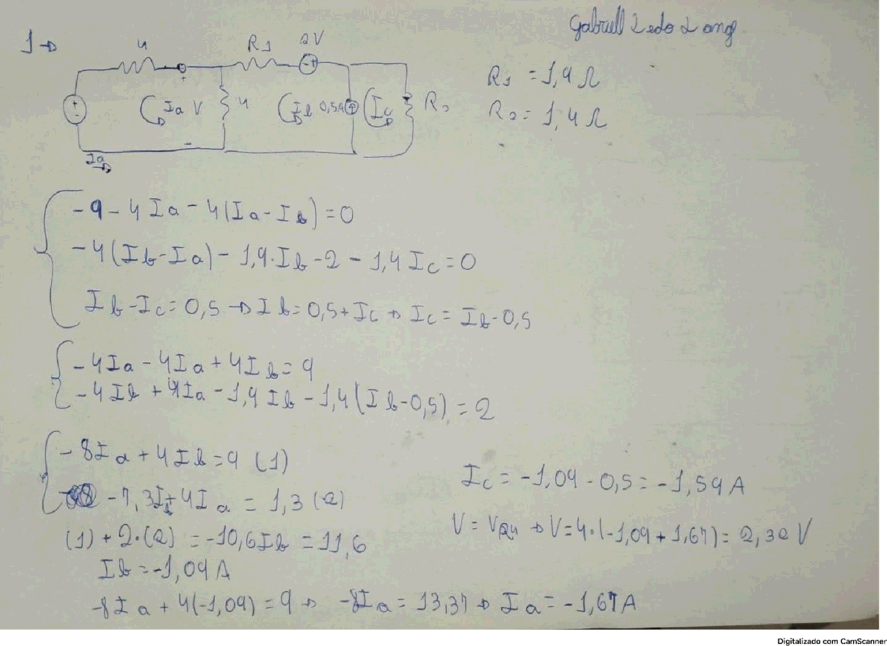 1→
4
R1
2V
Ia
V
4
Ib
0,5A
Ic
R2
Ia
R1 = 1,9 Ω
R2 = 1,4 Ω
-9 - 4Ia - 4(Ia - Ib) = 0
-4(Ib - Ia) - 1,9·Ib - 2 - 1,4Ic = 0
Ib - Ic = 0,5 → Ib = 0,5 + Ic → Ic = Ib - 0,5
-4Ia - 4Ia + 4Ib = 9
-4Ib + 4Ia - 1,9Ib - 1,4(Ib - 0,5) = 2
-8Ia + 4Ib = 9 (1)
-7,3Ib + 4Ia = 1,3 (2)
(1) + 2·(2) = -10,6Ib = 11,6
Ib = -1,09A
-8Ia + 4(-1,09) = 9 → -8Ia = 13,37 → Ia = -1,67A
Ic = -1,09 - 0,5 = -1,59A
V = VR4 → V = 4·(-1,09 + 1,67) = 2,32 V
Digitalizado com CamScanner